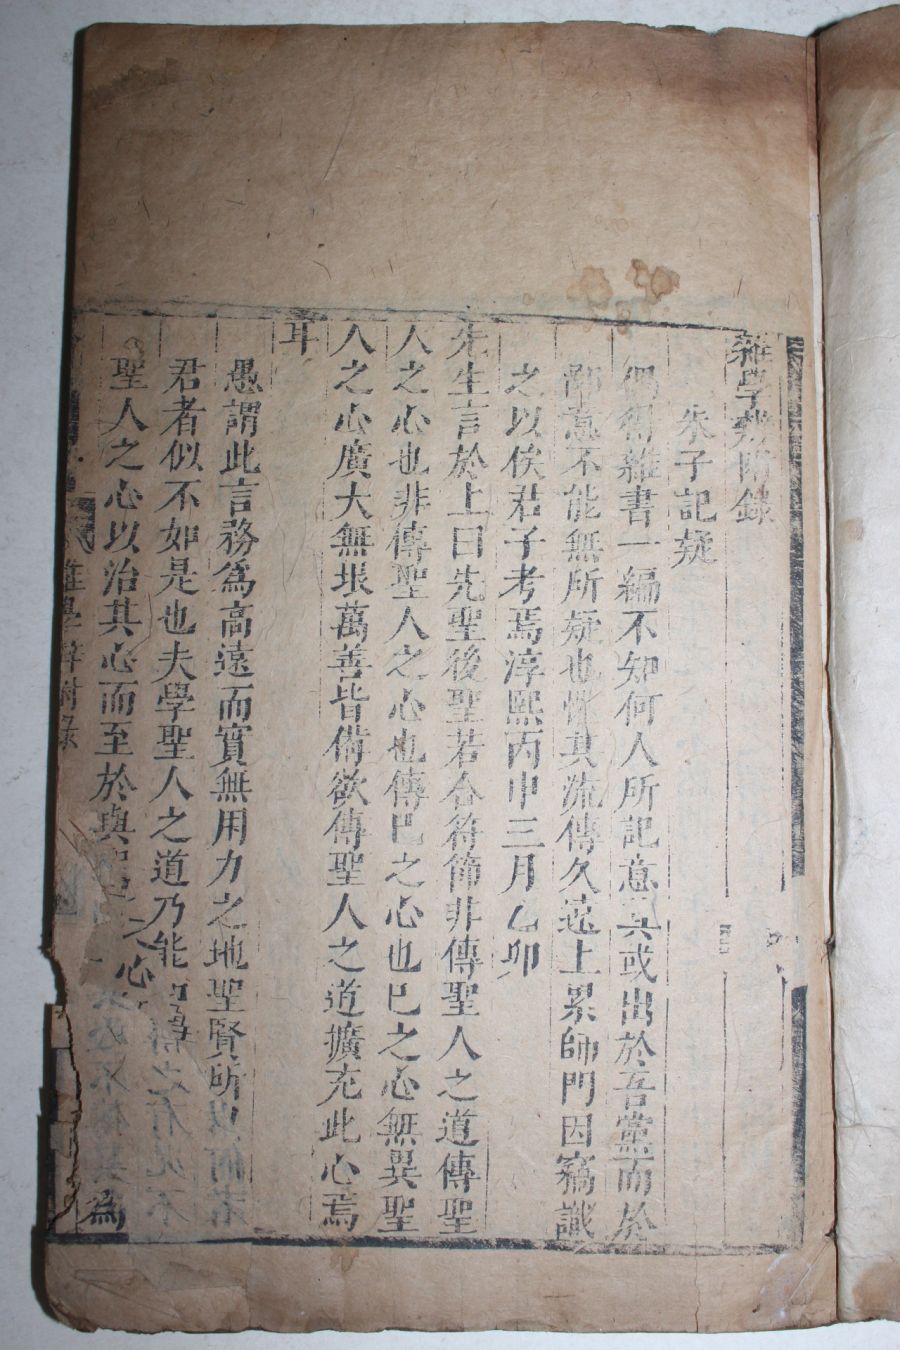 雜學辨附錄
朱子記疑
偶得雜書一編不知何人所記意其或出於吾黨而於
鄙意不能無所疑也懼其流傳久遠上累師門因竊識
之以俟君子考焉淳熙丙申三月乙卯
先生言於上曰先聖後聖若合符節非傳聖人之道傳聖
人之心也非傳聖人之心也傳巳之心也巳之心無異聖
人之心廣大無垠萬善皆備欲傳聖人之道擴充此心焉
耳
愚謂此言務爲高遠而實無用力之地聖賢所以
君者似不如是也夫學聖人之道乃能
聖人之心以治其心而至於與聖 之心
雜學辨附錄